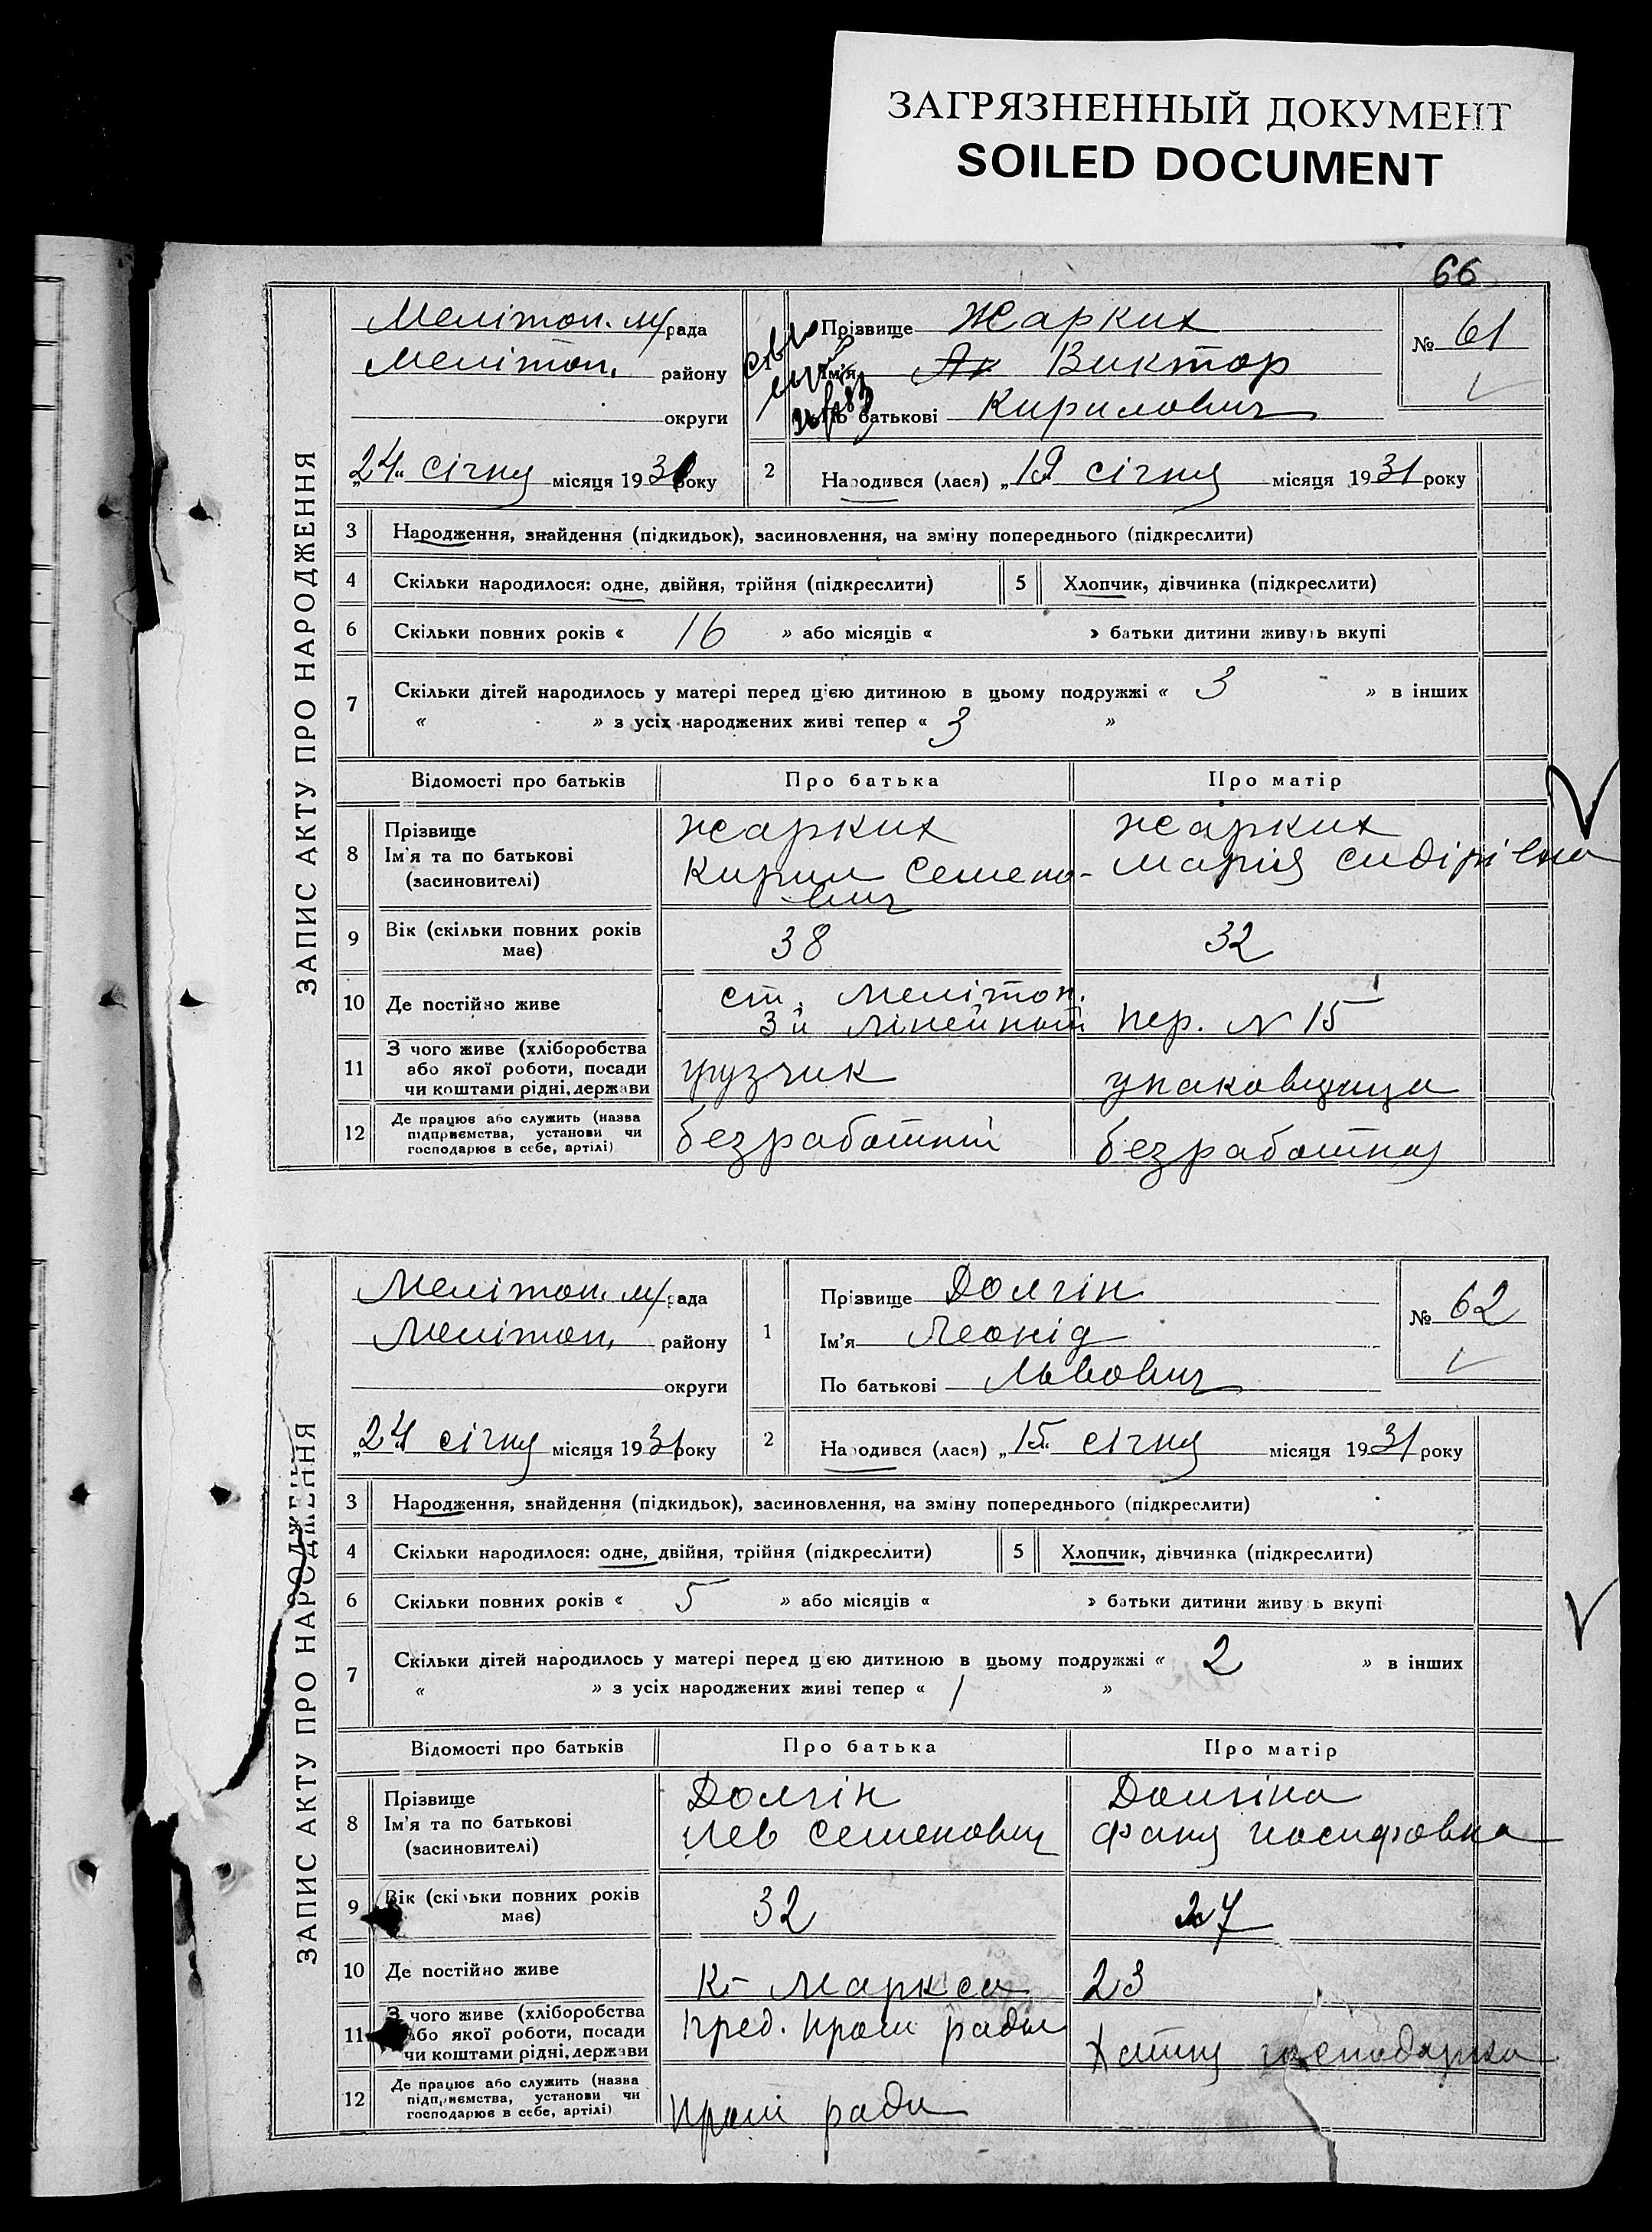 ЗАГРЯЗНЕННЫЙ ДОКУМЕНТ
SOILED DOCUMENT
66
ЗАПИС АКТУ ПРО НАРОДЖЕННЯ
Мелітоп. м/рада
Мелітоп. району
округи
„24“ січня місяця 1931 року
1
Прізвище Жарких
Ім'я Ак Виктор
По батькові Кирилович
№ 61
2 Народився (лася) „19“ січня місяця 1931 року
3 Народження, знайдення (підкидьок), засиновлення, на зміну попереднього (підкреслити)
4 Скільки народилося: одне, двійня, трійня (підкреслити) 5 Хлопчик, дівчинка (підкреслити)
6 Скільки повних років « 16 » або місяців « » батьки дитини живуть вкупі
7 Скільки дітей народилось у матері перед цією дитиною в цьому подружжі « 3 » в інших
« » з усіх народжених живі тепер « 3 »
Відомості про батьків Про батька Про матір
8 Прізвище Жарких Жарких
Ім'я та по батькові Кирил Семено- Мария Сидірівна
(засиновителі) вич
9 Вік (скільки повних років має) 38 32
10 Де постійно живе ст. Мелітоп.
3й Лінейний пер. N 15
11 З чого живе (хліборобства
або якої роботи, посади грузчик упаковщица
чи коштами рідні, держави
12 Де працює або служить (назва
підприємства, установи чи безработний безработная
господарює в себе, артілі)
ЗАПИС АКТУ ПРО НАРОДЖЕННЯ
Мелітоп. м/рада
Мелітоп. району
округи
„24“ січня місяця 1931 року
1
Прізвище Долгін
Ім'я Леонід
По батькові Львович
№ 62
2 Народився (лася) „15“ січня місяця 1931 року
3 Народження, знайдення (підкидьок), засиновлення, на зміну попереднього (підкреслити)
4 Скільки народилося: одне, двійня, трійня (підкреслити) 5 Хлопчик, дівчинка (підкреслити)
6 Скільки повних років « 5 » або місяців « » батьки дитини живуть вкупі
7 Скільки дітей народилось у матері перед цією дитиною в цьому подружжі « 2 » в інших
« » з усіх народжених живі тепер « 1 »
Відомості про батьків Про батька Про матір
8 Прізвище Долгін Долгіна
Ім'я та по батькові Лев Семенович Фаня Иосифовна
(засиновителі)
9 Вік (скільки повних років має) 32 27
10 Де постійно живе К- Маркса 23
11 З чого живе (хліборобства пред. пром ради
або якої роботи, посади Хатня господарка
чи коштами рідні, держави
12 Де працює або служить (назва
підприємства, установи чи пром ради
господарює в себе, артілі)